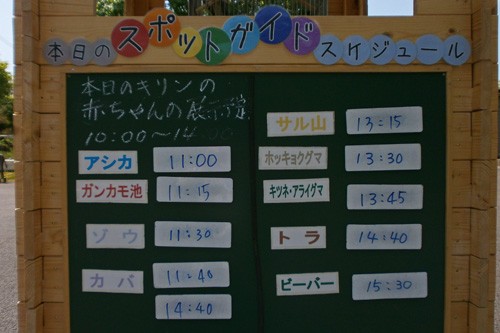 本日のスポットガイドスケジュール
本日のキリンの
赤ちゃんの展示
10:00～14:00
アシカ 11:00
ガンカモ池 11:15
ゾウ 11:30
カバ 11:40
14:40
サル山 13:15
ホッキョクグマ 13:30
キツネ・アライグマ 13:45
トラ 14:40
ビーバー 15:30